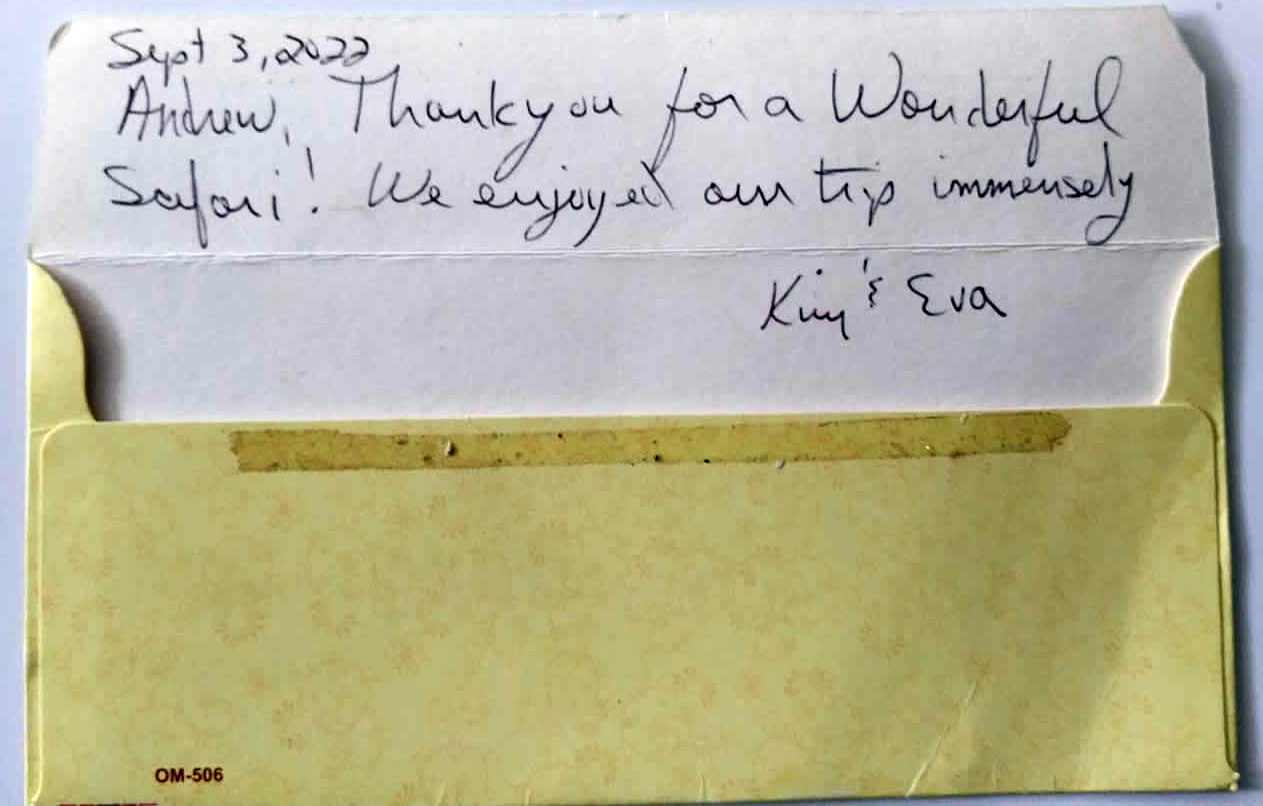 Sept 3, 2022
Andrew, Thank you for a Wonderful
Safari! We enjoyed our trip immensely
Kim & Eva
OM-506